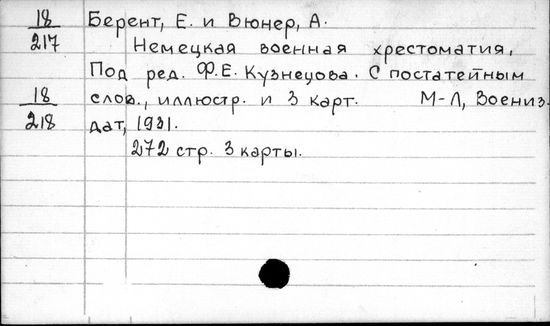 18
217
Берент, Е. и Вюнер, А.
Немецкая военная хрестоматия,
Под ред. Ф.Е. Кузнецова. С постатейным
18
218
слов., иллюстр. и 3 карт. М-Л, Воениз
дат, 1931.
272 стр. 3 карты.